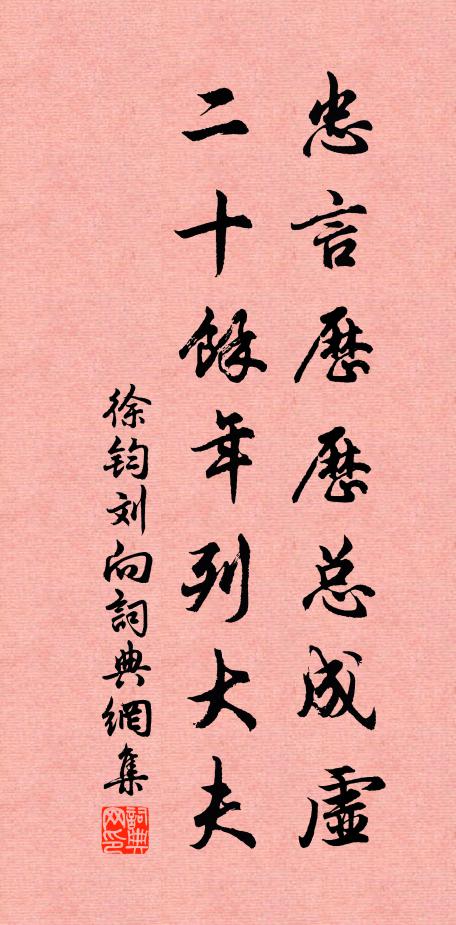 忠言歷歷总成虛
二十餘年列大夫
徐钧刘向詞典網集
詞典网印